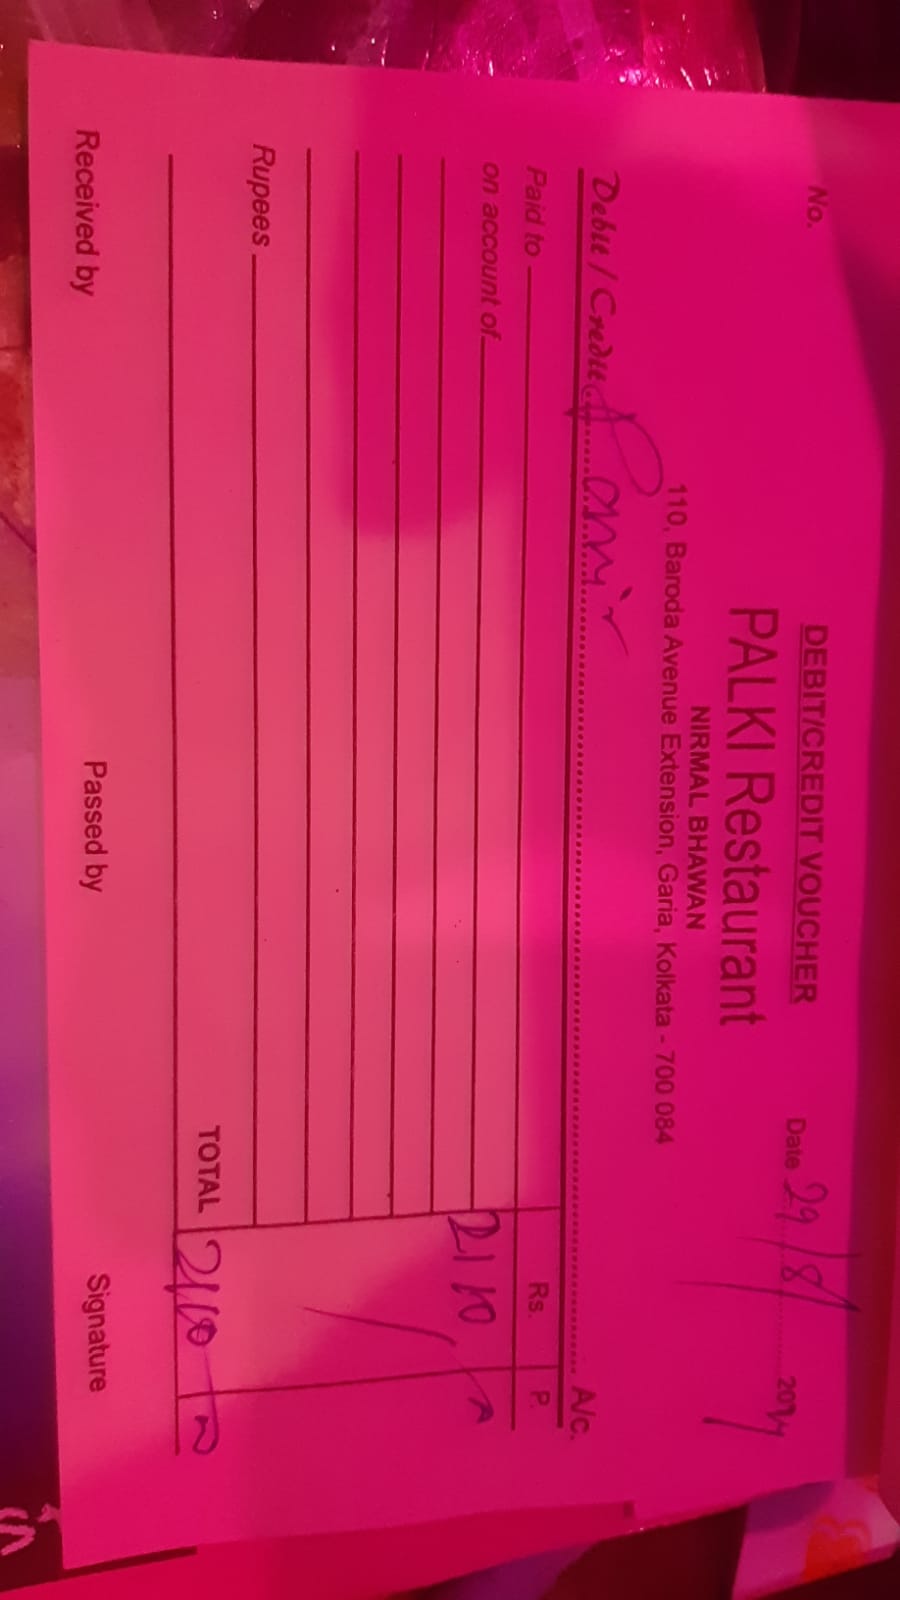 DEBIT/CREDIT VOUCHER
No. Date 29/8/ 2024
PALKI Restaurant
NIRMAL BHAWAN
110, Baroda Avenue Extension, Garia, Kolkata - 700 084
Debit / Credit A/c.
Paid to Rs. P.
on account of 2110
Rupees
TOTAL 2110
Received by Passed by Signature